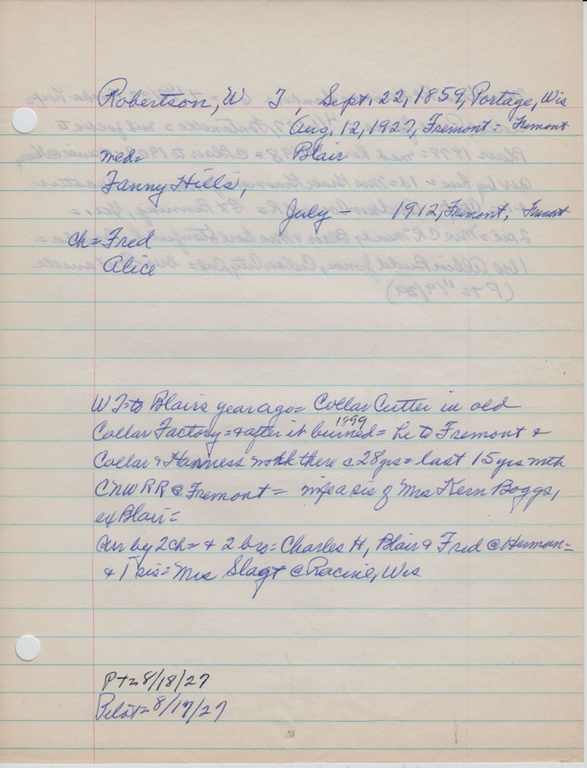 Robertson, W T, Sept. 22, 1859, Portage, Wis
Aug. 12, 1927, Fremont = Fremont
med= Blair
Fanny Hills,
July - 1912, Fremont, Fremont
ch= Fred
Alice
WT=to Blair years ago= Collar Cutter in old
Collar Factory= & after it burned= 1899 he to Fremont &
Collar & Harness work there c 28 yrs= last 15 yrs with
CNW RR @ Fremont= wife a sis of Mrs Kern Boggs,
ex Blair=
Sur by 2 ch= & 2 bro= Charles H, Blair & Fred @ Herman=
& 1 sis= Mrs Slagt @ Racine, Wis
PT= 8/18/27
Pilot= 8/17/27